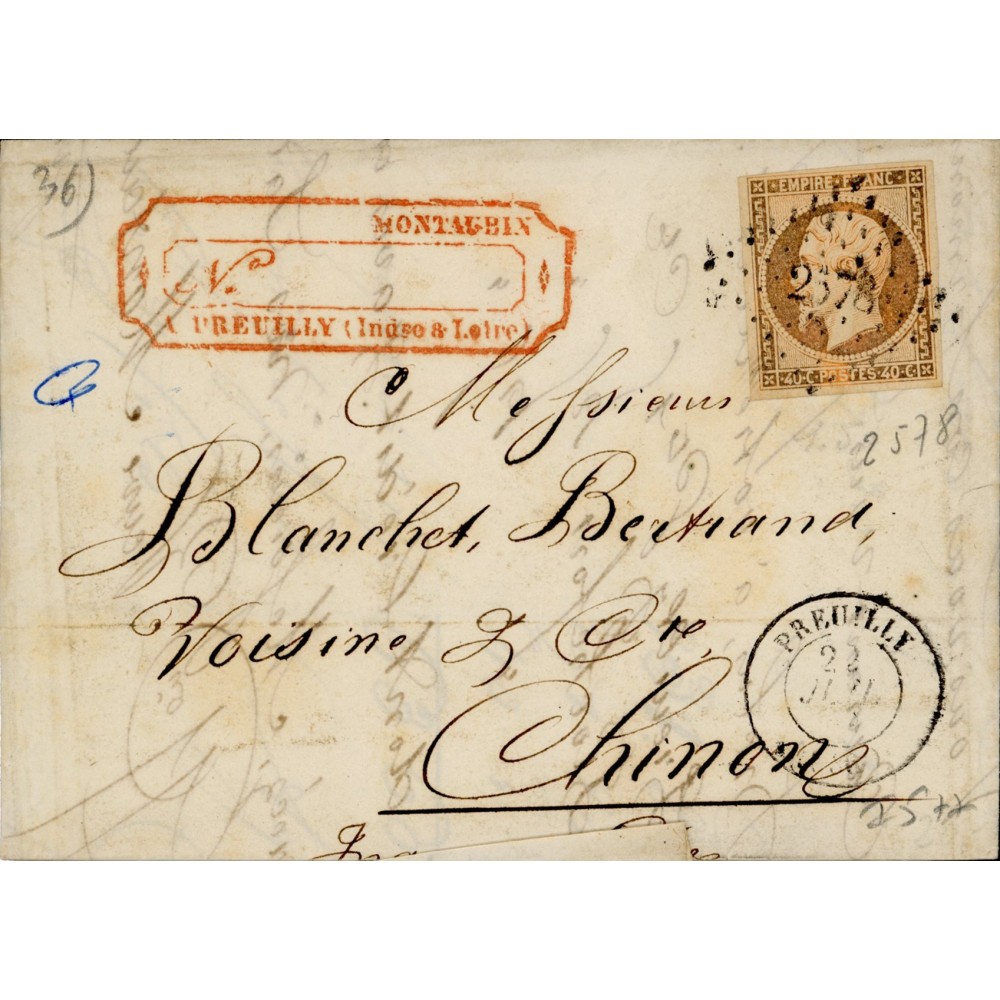 36)
MONTAUBIN
N.o
A PREUILLY (Indre & Loire)
EMPIRE FRANC
2578
40·C·POSTES·40·C
2578
Messieurs
Blanchet, Bertrand,
Voisine & Cie,
Chinon
PREUILLY
22
JUIL
2577